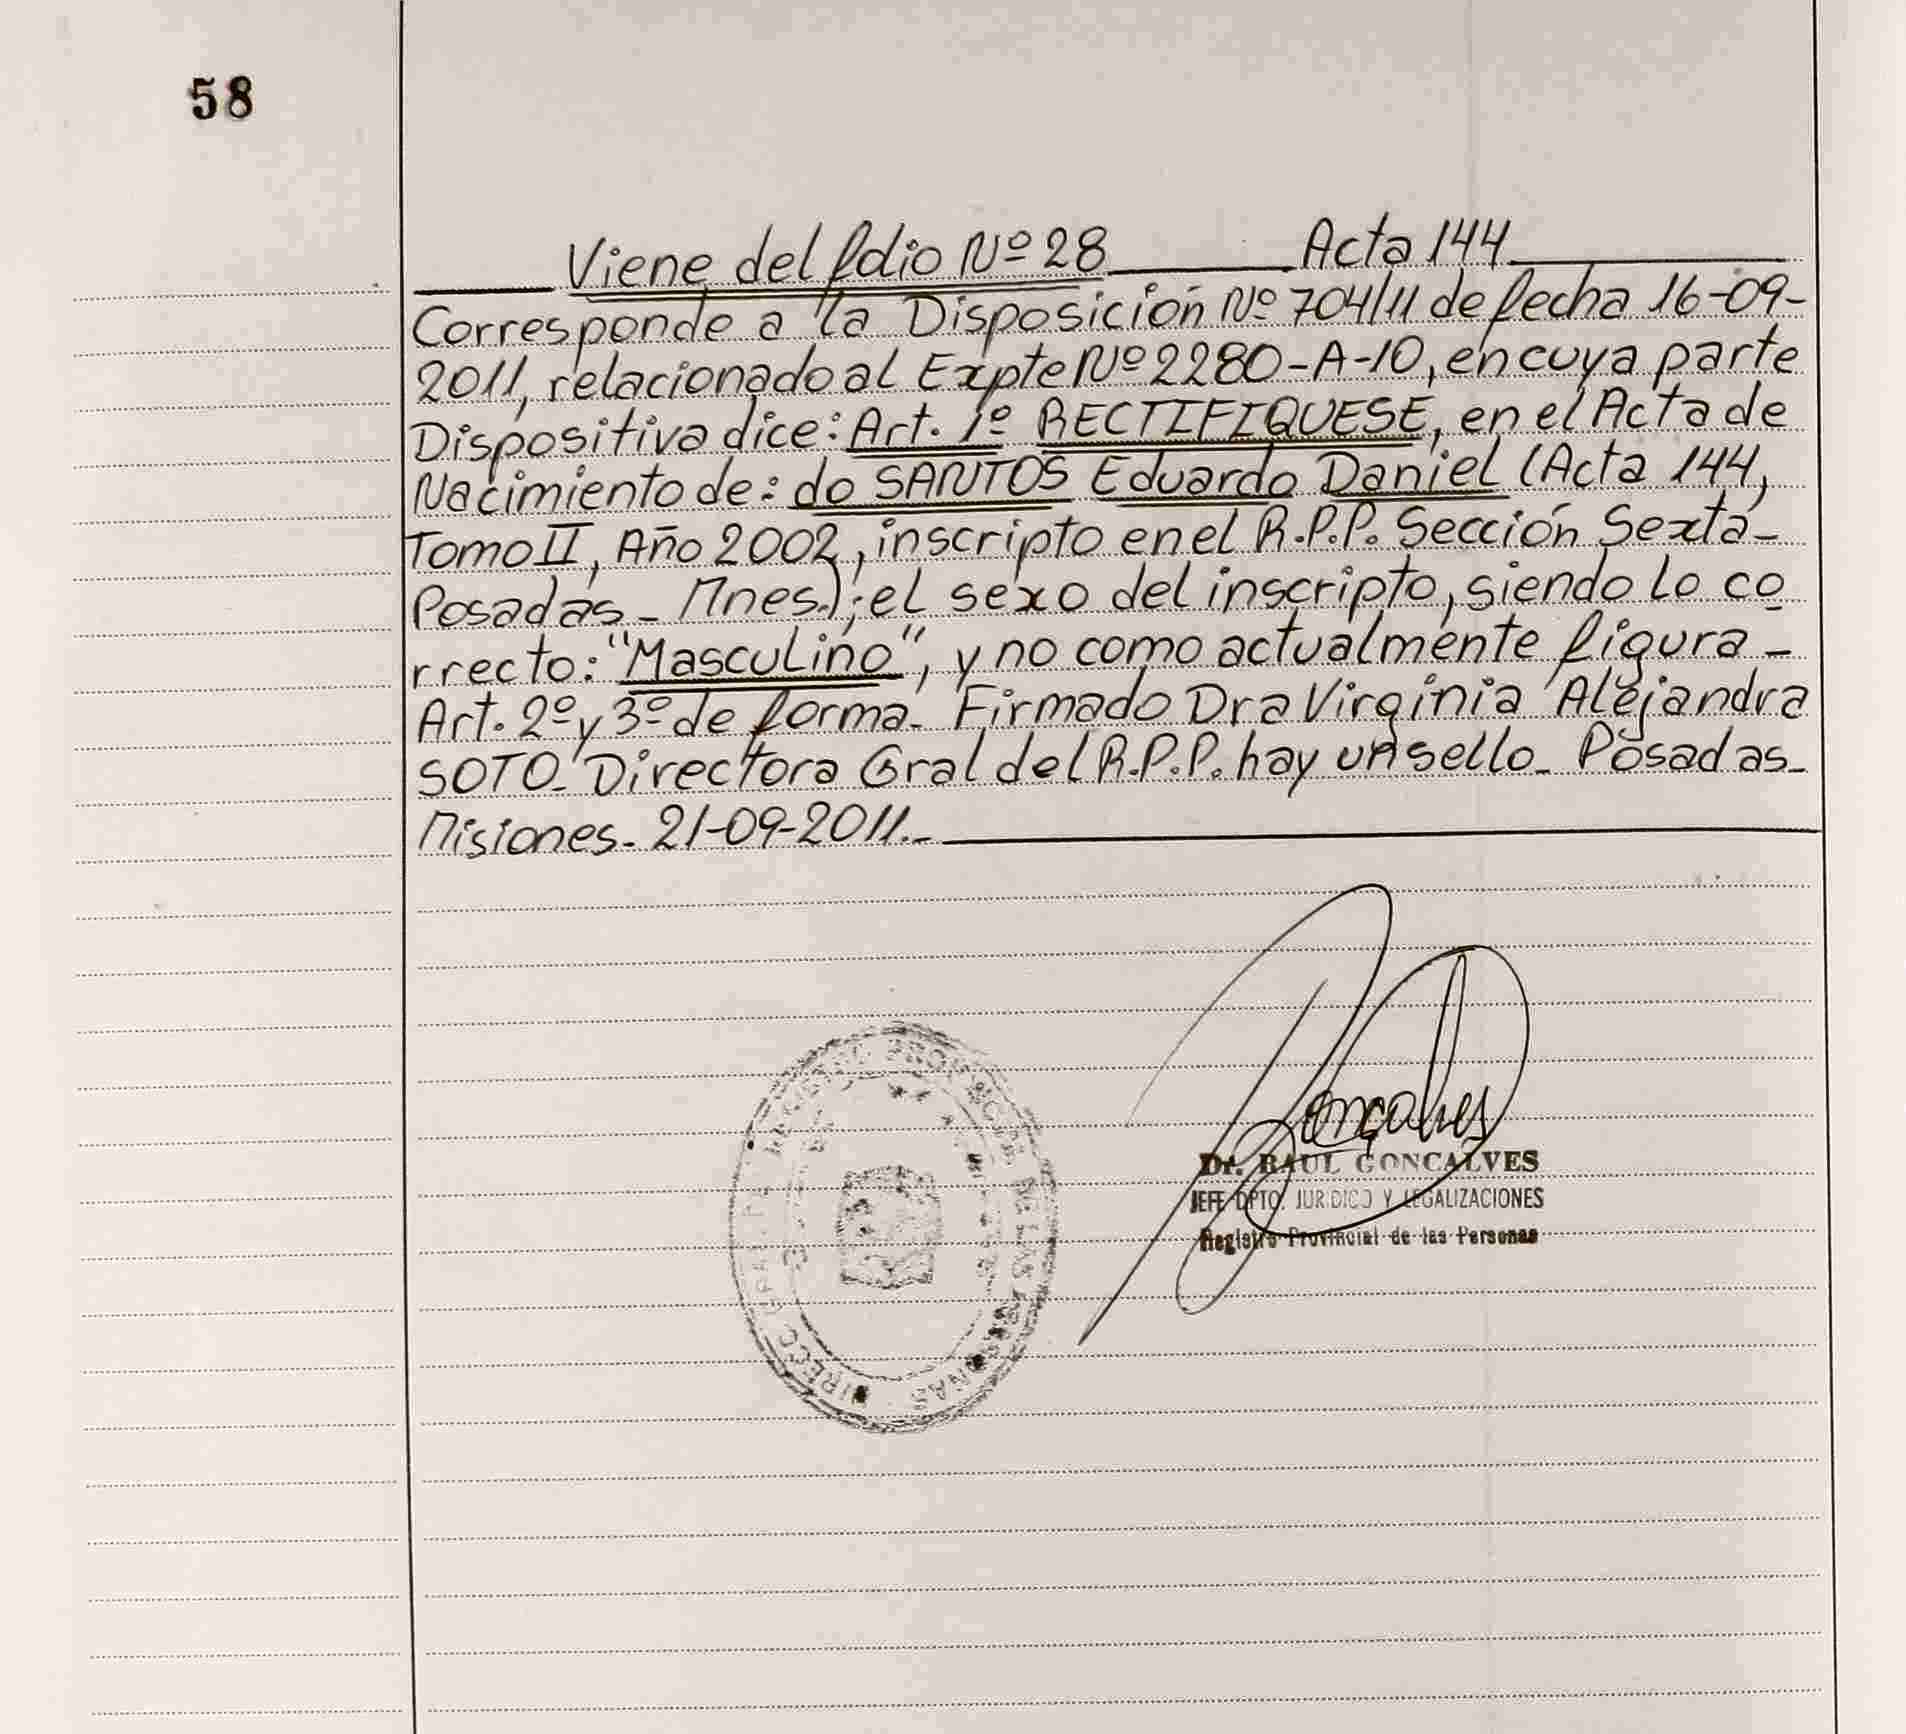 58
Viene del folio Nº 28 Acta 144
Corresponde a la Disposición Nº 704/11 de fecha 16-09-
2011, relacionado al Expte Nº 2280-A-10, en cuya parte
Dispositiva dice: Art. 1º RECTIFIQUESE, en el Acta de
Nacimiento de: do SANTOS Eduardo Daniel (Acta 144,
Tomo II, Año 2002, inscripto en el R.P.P. Sección Sexta-
Posadas - Mnes.); el sexo del inscripto, siendo lo co
rrecto: "Masculino", y no como actualmente figura -
Art. 2º y 3º de forma - Firmado Dra Virginia Alejandra
SOTO - Directora Gral del R.P.P. hay un sello - Posadas -
Misiones - 21-09-2011.-
Gonçalves
Dr. RAUL GONCALVES
JEFE DPTO. JURIDICO Y LEGALIZACIONES
Registro Provincial de las Personas
DIRECC GRAL DEL REGISTRO PROVINCIAL DE LAS PERSONAS